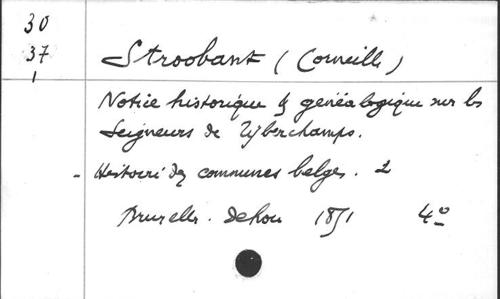 30
37
1
Stroobant (Corneille)
Notice historique & généalogique sur les
Seigneurs de Tyberchamps.
- Histoire des communes belges. 2
Bruxelles. Dehou 1851 4o